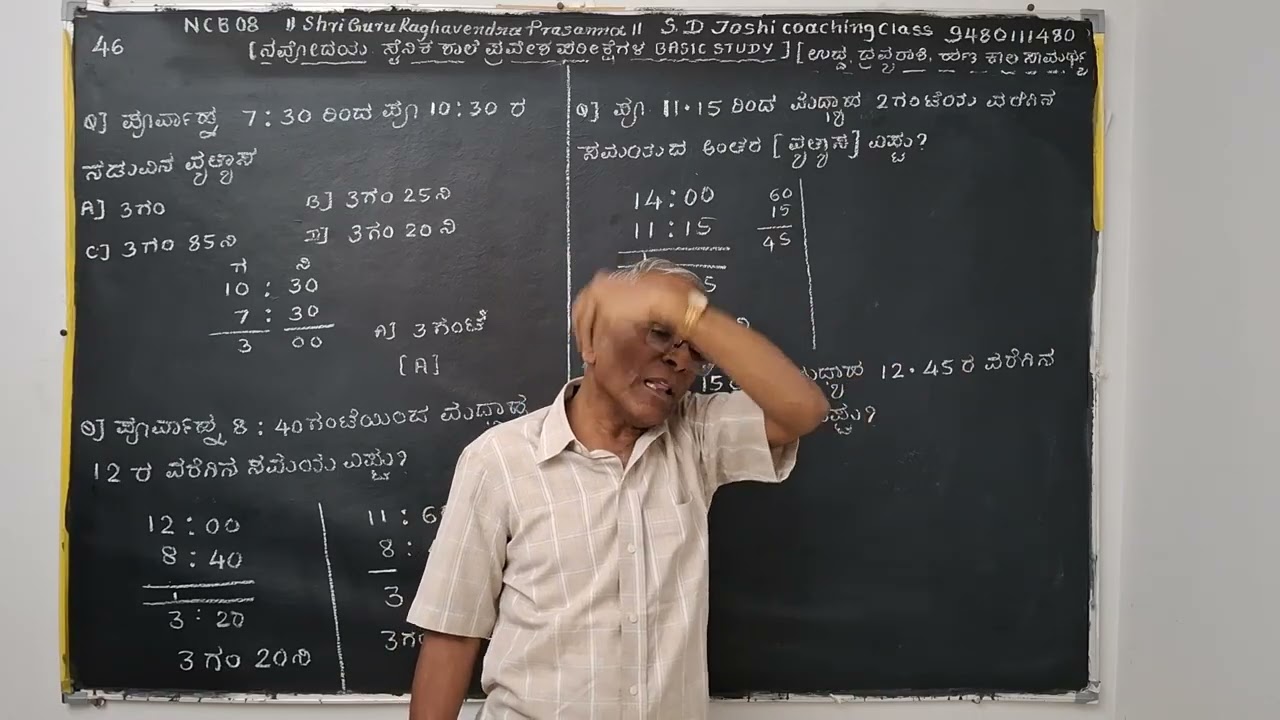 46
NCB 08 || Shri Guru Raghavendra Prasanna || S. D Joshi coaching class 9480111480
[ನವೋದಯ ಸೈನಿಕ ಶಾಲೆ ಪ್ರವೇಶ ಪರೀಕ್ಷೆಗಳ BASIC STUDY] [ಉದ್ದ, ದ್ರವ್ಯರಾಶಿ, ಹಣ ಕಾಲ ಸಾಮರ್ಥ್ಯ
Q] ಪೂರ್ವಾಹ್ನ 7:30 ರಿಂದ ಪೂ 10:30 ರ
ನಡುವಿನ ವ್ಯತ್ಯಾಸ
A] 3ಗಂ B] 3ಗಂ 25ನಿ
C] 3ಗಂ 85ನಿ D] 3ಗಂ 20ನಿ
ಗ ನಿ
10 : 30
7 : 30
3 00
A] 3ಗಂಟೆ
[A]
Q] ಪೂರ್ವಾಹ್ನ 8:40ಗಂಟೆಯಿಂದ ಮಧ್ಯಾಹ್ನ
12 ರ ವರೆಗಿನ ಸಮಯ ಎಷ್ಟು?
12:00
8:40
3:20
3ಗಂ 20ನಿ
11:6
8:
3
3ಗ
Q] ಪೂ 11.15 ರಿಂದ ಮಧ್ಯಾಹ್ನ 2ಗಂಟೆಯ ವರೆಗಿನ
ಸಮಯದ ಅಂತರ [ವ್ಯತ್ಯಾಸ] ಎಷ್ಟು?
14:00
11:15
5
60
15
45
15 12.45ರ ವರೆಗಿನ